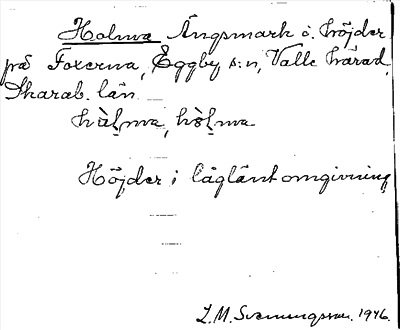 Holma Ängsmark o. höjder
på Foxerna, Eggby s:n, Valle härad,
Skarab. län
hòl̠ma
Höjder i låglänt omgivning
L.M. Svenungsson. 1946.